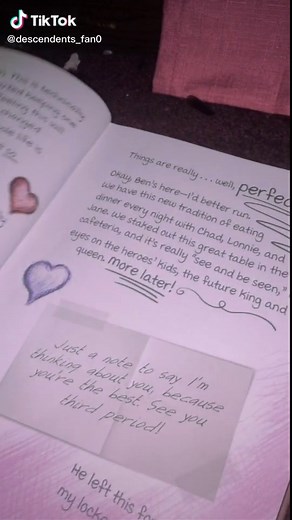 TikTok
@descendents_fan0
Things are really . . . well, perfec
Okay, Ben's here—I'd better run.
We have this new tradition of eating
dinner every night with Chad, Lonnie, and
Jane. We staked out this great table in the
cafeteria, and it's really "see and be seen,"
eyes on the heroes' kids, the future king and
queen. More later!
Just a note to say I'm
thinking about you, because
you're the best. See you
third period!
He left this fo
my locke